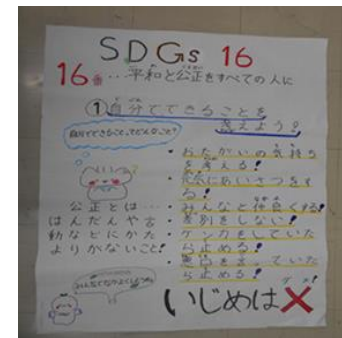 SDGs 16
16番…平和と公正をすべての人に
①自分でできることを
考えよう!
自分でできること、てどんなこと?
・おたがいの気持ち
を考える!
・元気にあいさつをす
る!
・みんなと仲良くする!
・差別をしない!
・ケンカをしていた
ら止める!
・悪口を言っていた
ら止める!
公正とは…
はんだんや言
動などにかた
よりがないこと!
みんなでなかよくしようね
ダメ!
いじめは✕